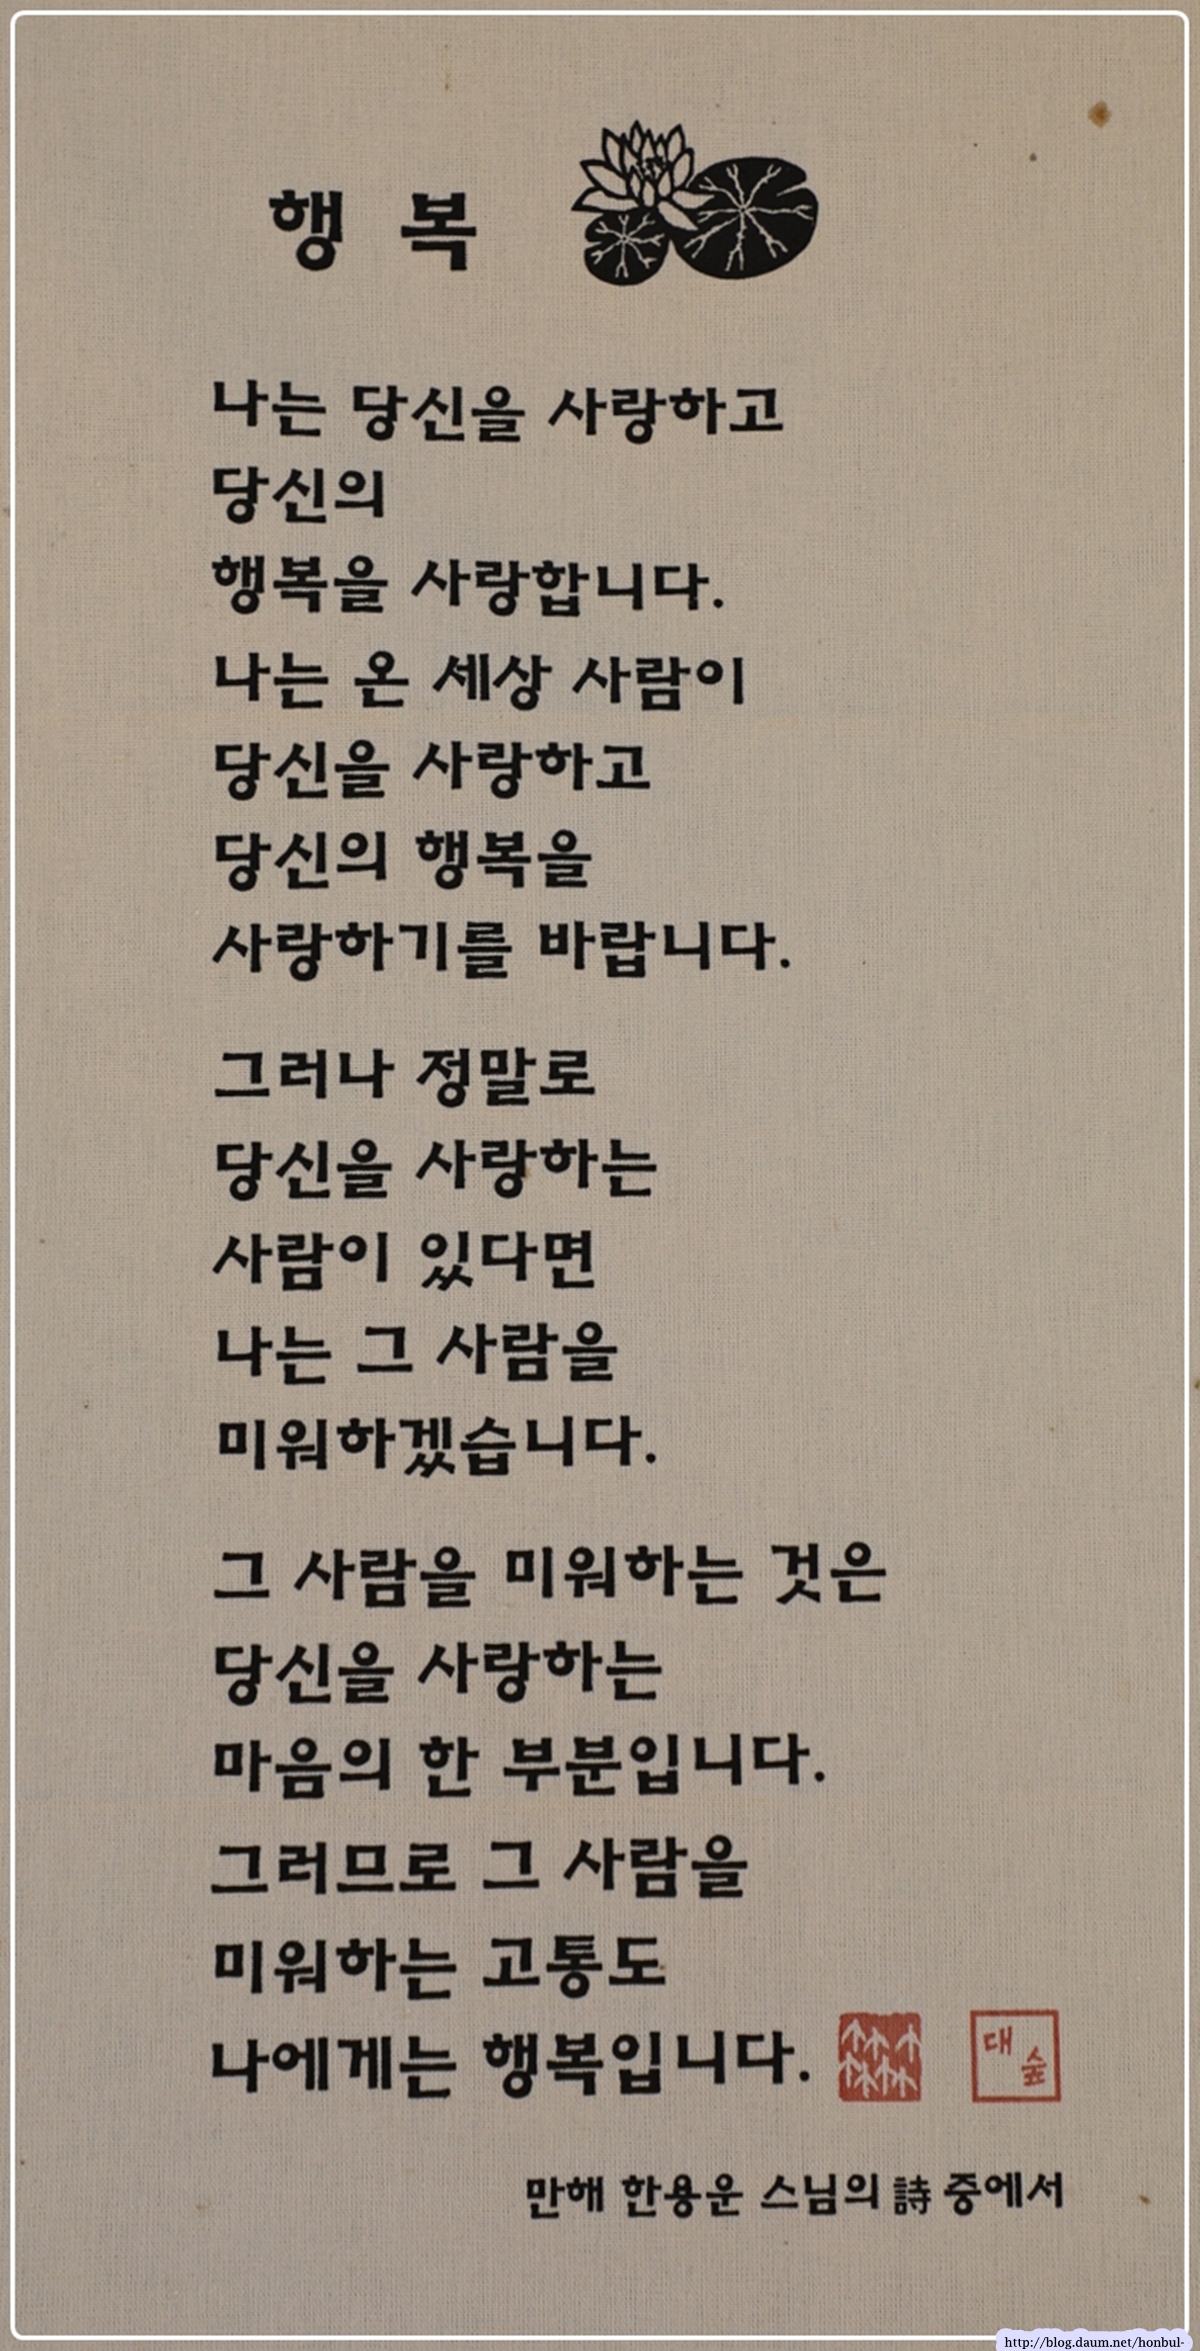 행 복
나는 당신을 사랑하고
당신의
행복을 사랑합니다.
나는 온 세상 사람이
당신을 사랑하고
당신의 행복을
사랑하기를 바랍니다.
그러나 정말로
당신을 사랑하는
사람이 있다면
나는 그 사람을
미워하겠습니다.
그 사람을 미워하는 것은
당신을 사랑하는
마음의 한 부분입니다.
그러므로 그 사람을
미워하는 고통도
나에게는 행복입니다.
대숲
만해 한용운 스님의 詩 중에서
http://blog.daum.net/honbul-